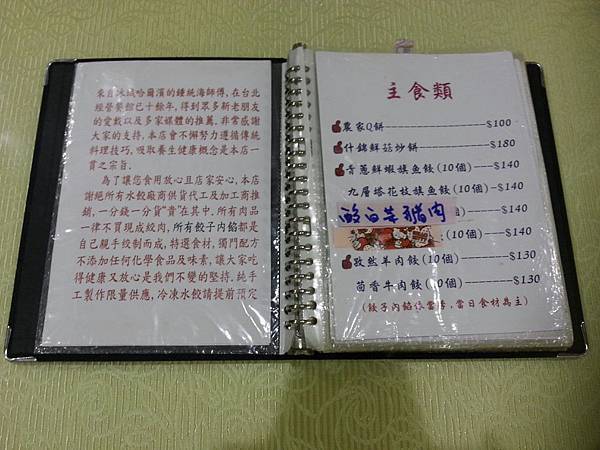 來自冰城哈爾濱的鍾統海師傅,在台北
經營餐館已十餘年,得到眾多新老朋友
的愛戴以及多家媒體的推薦,非常感謝
大家的支持,本店會不懈努力遵循傳統
料理技巧,吸取養生健康概念是本店一
貫之宗旨.
為了讓您食用放心且店家安心,本店
謝絕所有水餃廠商供貨代工及加工商推
銷,一分錢一分貨"貴"在其中,所有肉品
一律不買現成絞肉,所有餃子內餡都是
自己親手絞制而成,特選食材,獨門配方
不添加任何化學食品及味素,讓大家吃
得健康又放心是我們不變的堅持.純手
工製作限量供應,冷凍水餃請提前預定
主食類
農家Q餅$100
什錦鮮菇炒餅$180
青蔥鮮蝦旗魚餃(10個)$140
九層塔花枝旗魚餃(10個)$140
酸白菜豬肉(10個)$140
(10個)$140
孜然羊肉餃(10個)$130
茴香牛肉餃(10個)$130
(餃子內餡依當時,當日食材為主)